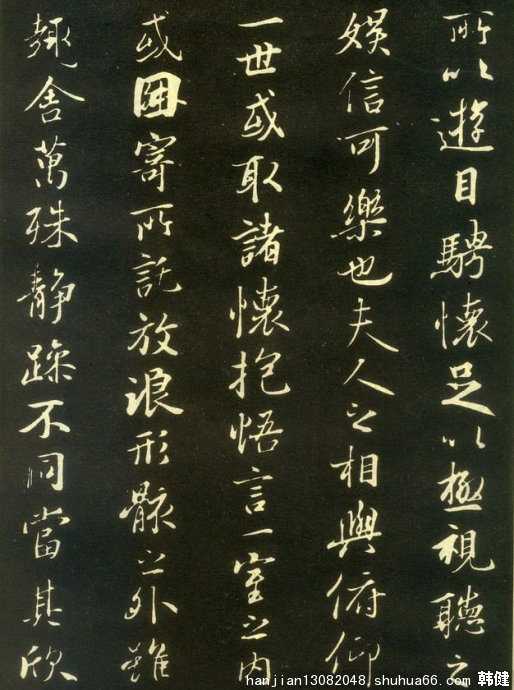 所以遊目騁懷足以極視聽之
娛信可樂也夫人之相與俯仰
一世或取諸懷抱悟言一室之內
或因寄所託放浪形骸之外雖
趣舍萬殊靜躁不同當其欣
hanjian13082048, shuhua66.com 韩健